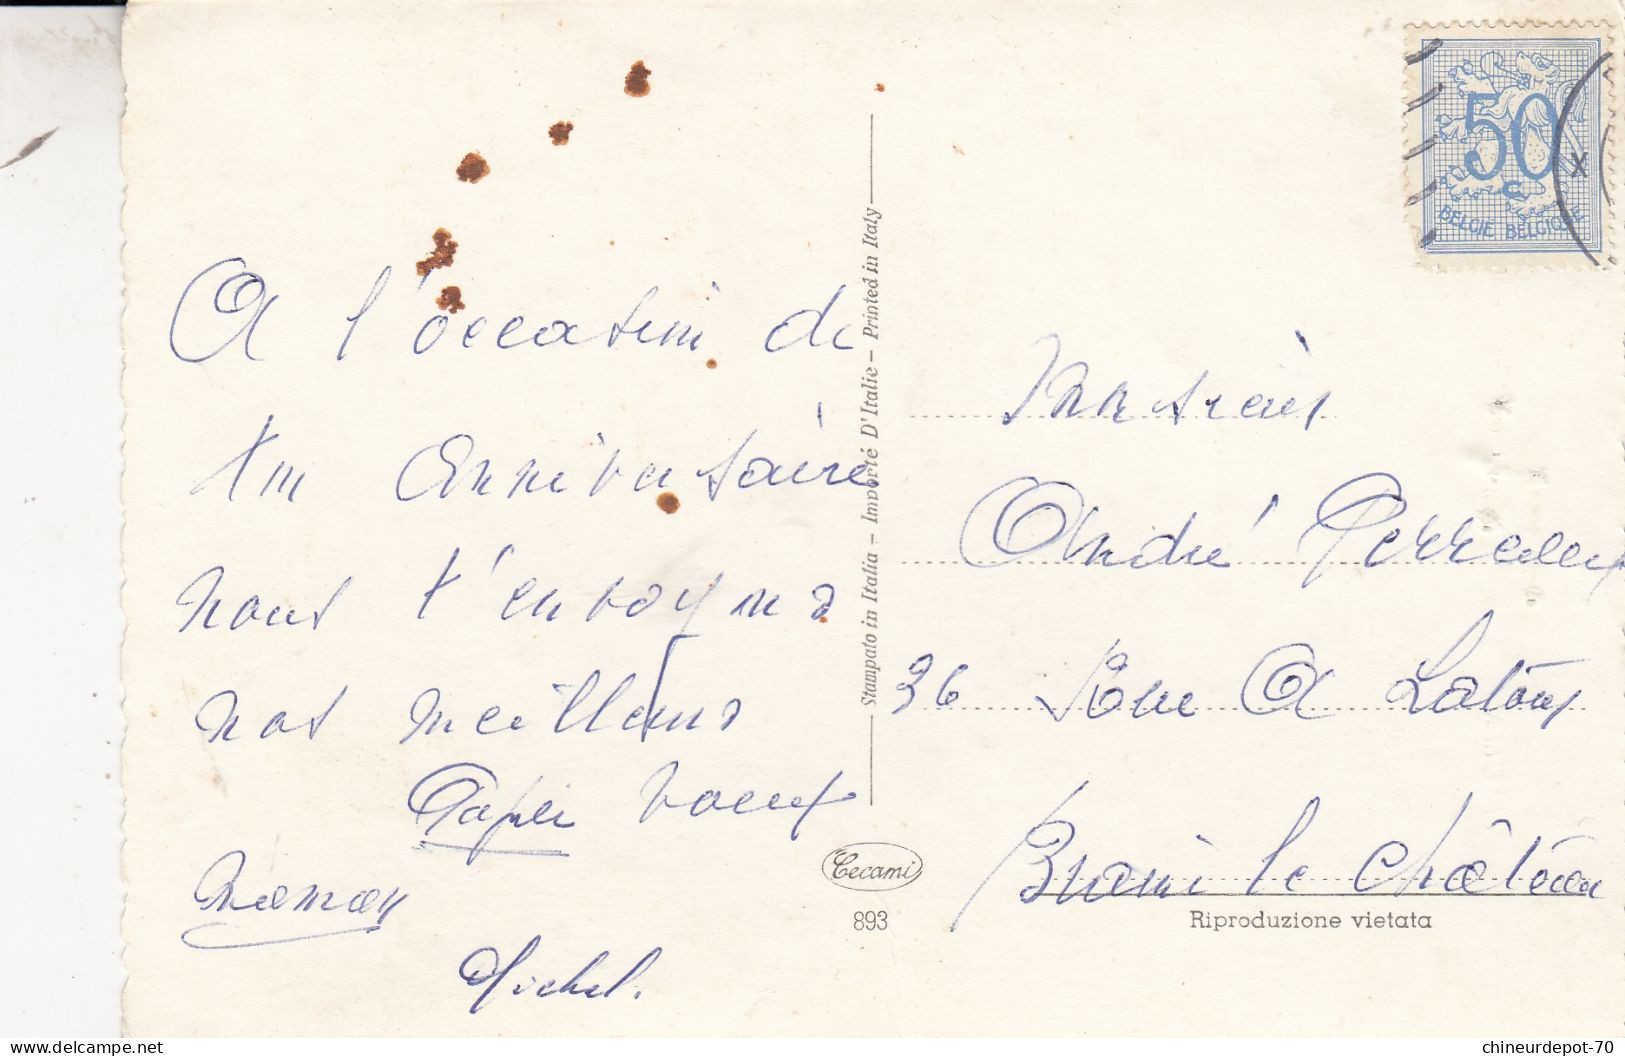 A l'occasion de
ton Anniversaire
nous t'envoyons
nos meilleurs
Papa voeux
Maman
Michel.
Stampato in Italia - Importé D'Italie - Printed in Italy
Cecami
893
50
c
BELGIË BELGIQUE
X
Monsieur
André
36 Rue A Latour
Braine le Château
Riproduzione vietata
chineurdepot-70